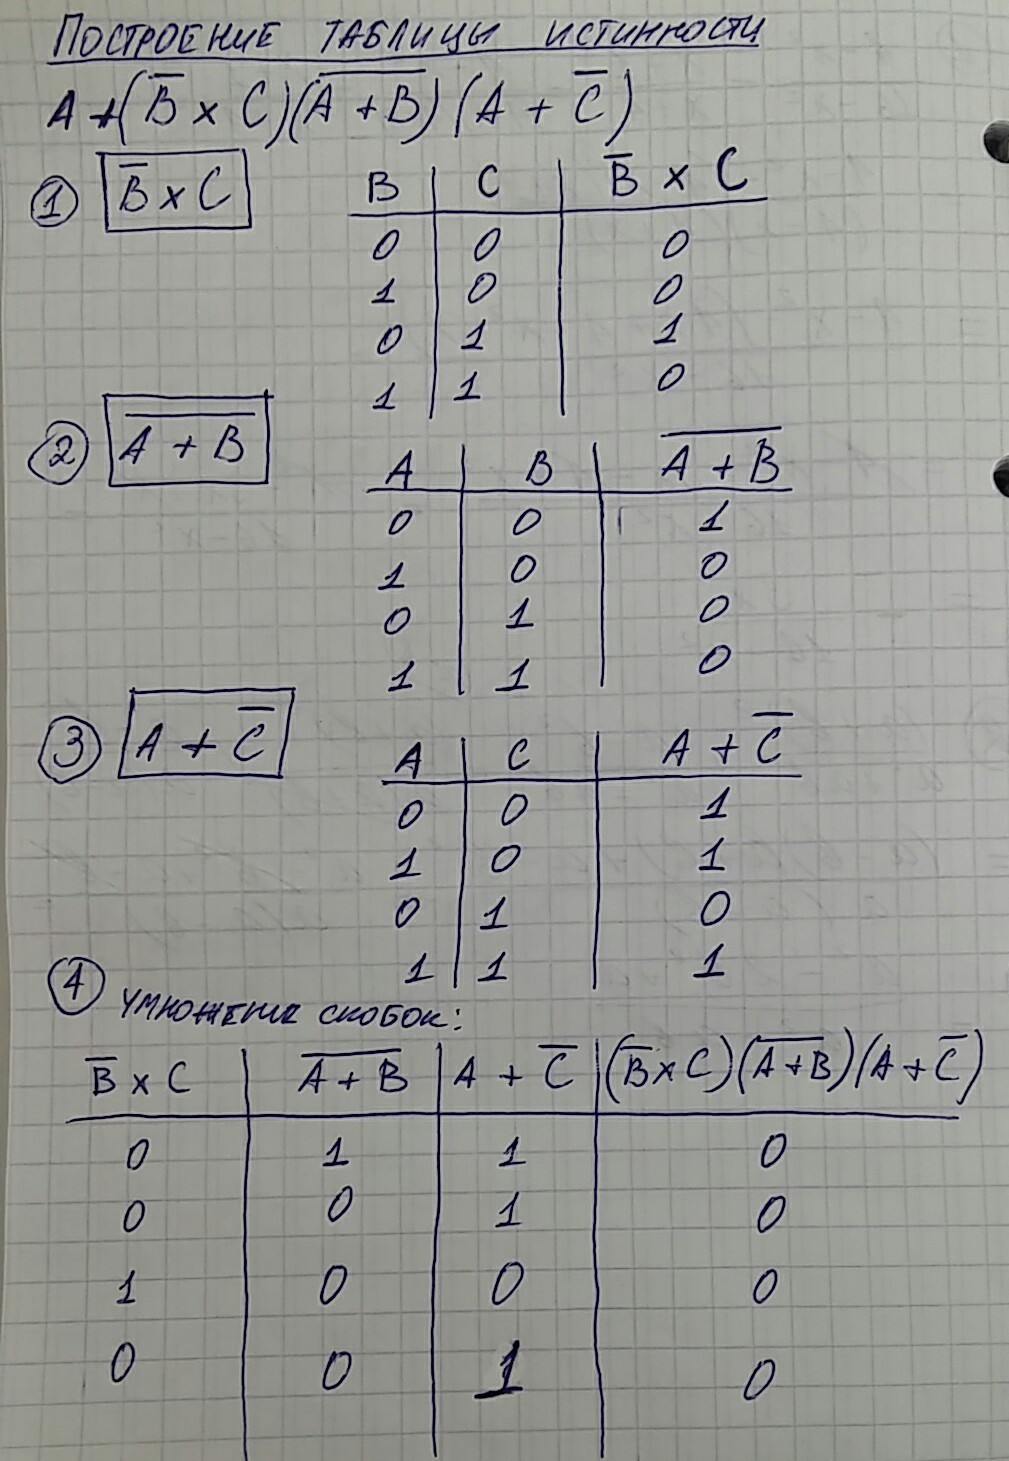 Построение таблицы истинности
A + (B̅ × C)(A̅ ̅+̅ ̅B̅)(A + C̅)
① B̅ × C
B | C | B̅ × C
0 | 0 | 0
1 | 0 | 0
0 | 1 | 1
1 | 1 | 0
② A̅ ̅+̅ ̅B̅
A | B | A̅ ̅+̅ ̅B̅
0 | 0 | 1
1 | 0 | 0
0 | 1 | 0
1 | 1 | 0
③ A + C̅
A | C | A + C̅
0 | 0 | 1
1 | 0 | 1
0 | 1 | 0
1 | 1 | 1
④ Умножение скобок:
B̅ × C | A̅ ̅+̅ ̅B̅ | A + C̅ | (B̅ × C)(A̅ ̅+̅ ̅B̅)(A + C̅)
0 | 1 | 1 | 0
0 | 0 | 1 | 0
1 | 0 | 0 | 0
0 | 0 | 1 | 0